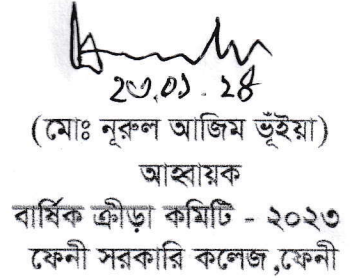 ২৩.০১.২৪
(মোঃ নূরুল আজিম ভূঁইয়া)
আহ্বায়ক
বার্ষিক ক্রীড়া কমিটি - ২০২৩
ফেনী সরকারি কলেজ ,ফেনী